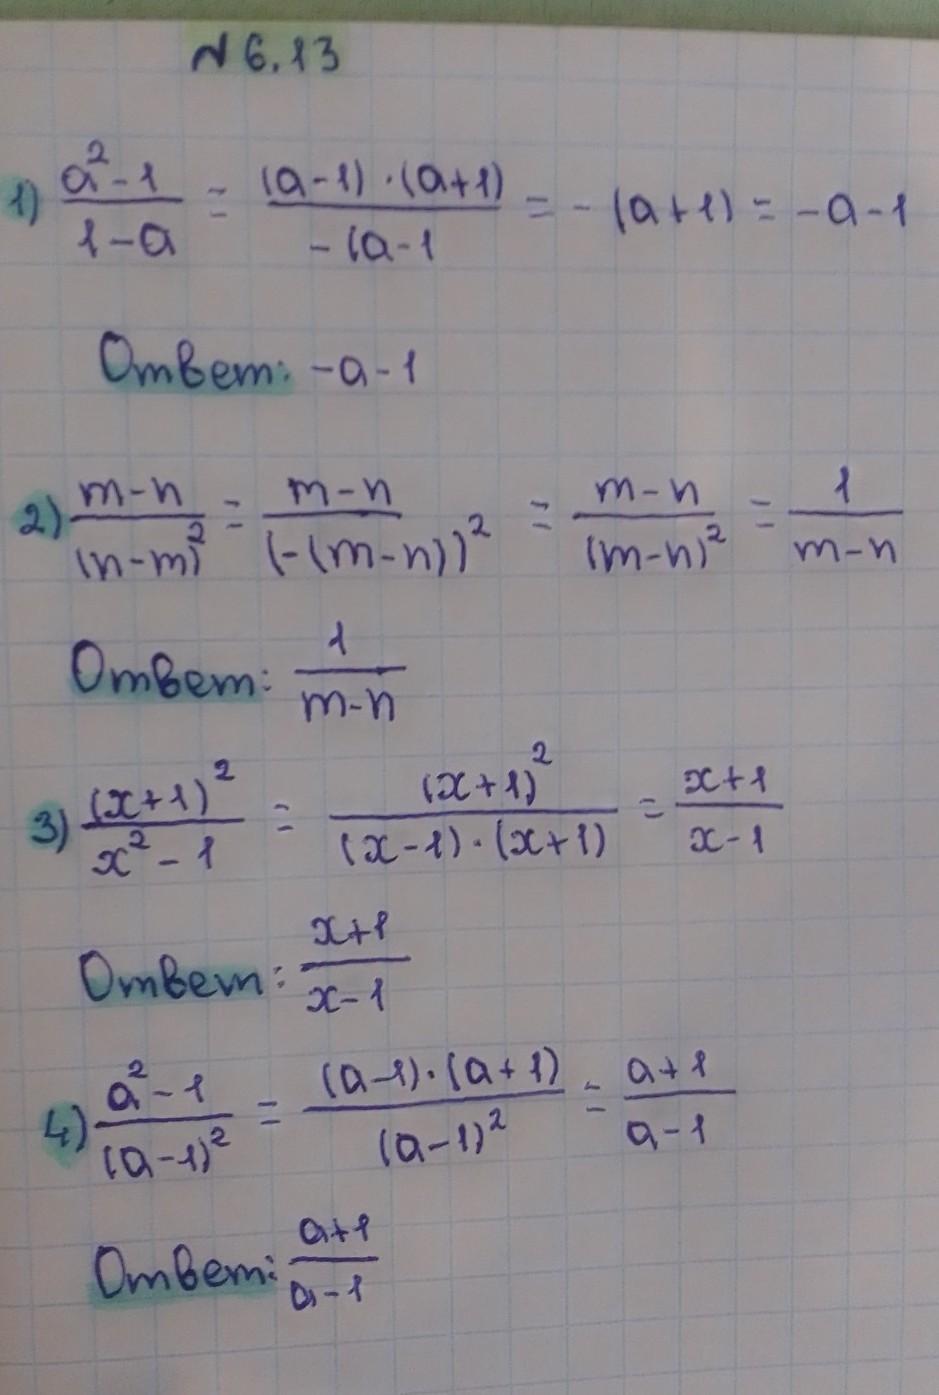 N 6.13
1) (a²-1)/(1-a) = ((a-1)·(a+1))/(-(a-1) = -(a+1) = -a-1
Ответ: -a-1
2) (m-n)/(n-m)² = (m-n)/(-(m-n))² = (m-n)/(m-n)² = 1/(m-n)
Ответ: 1/(m-n)
3) (x+1)²/(x²-1) = (x+1)²/((x-1)·(x+1)) = (x+1)/(x-1)
Ответ: (x+1)/(x-1)
4) (a²-1)/(a-1)² = ((a-1)·(a+1))/(a-1)² = (a+1)/(a-1)
Ответ: (a+1)/(a-1)